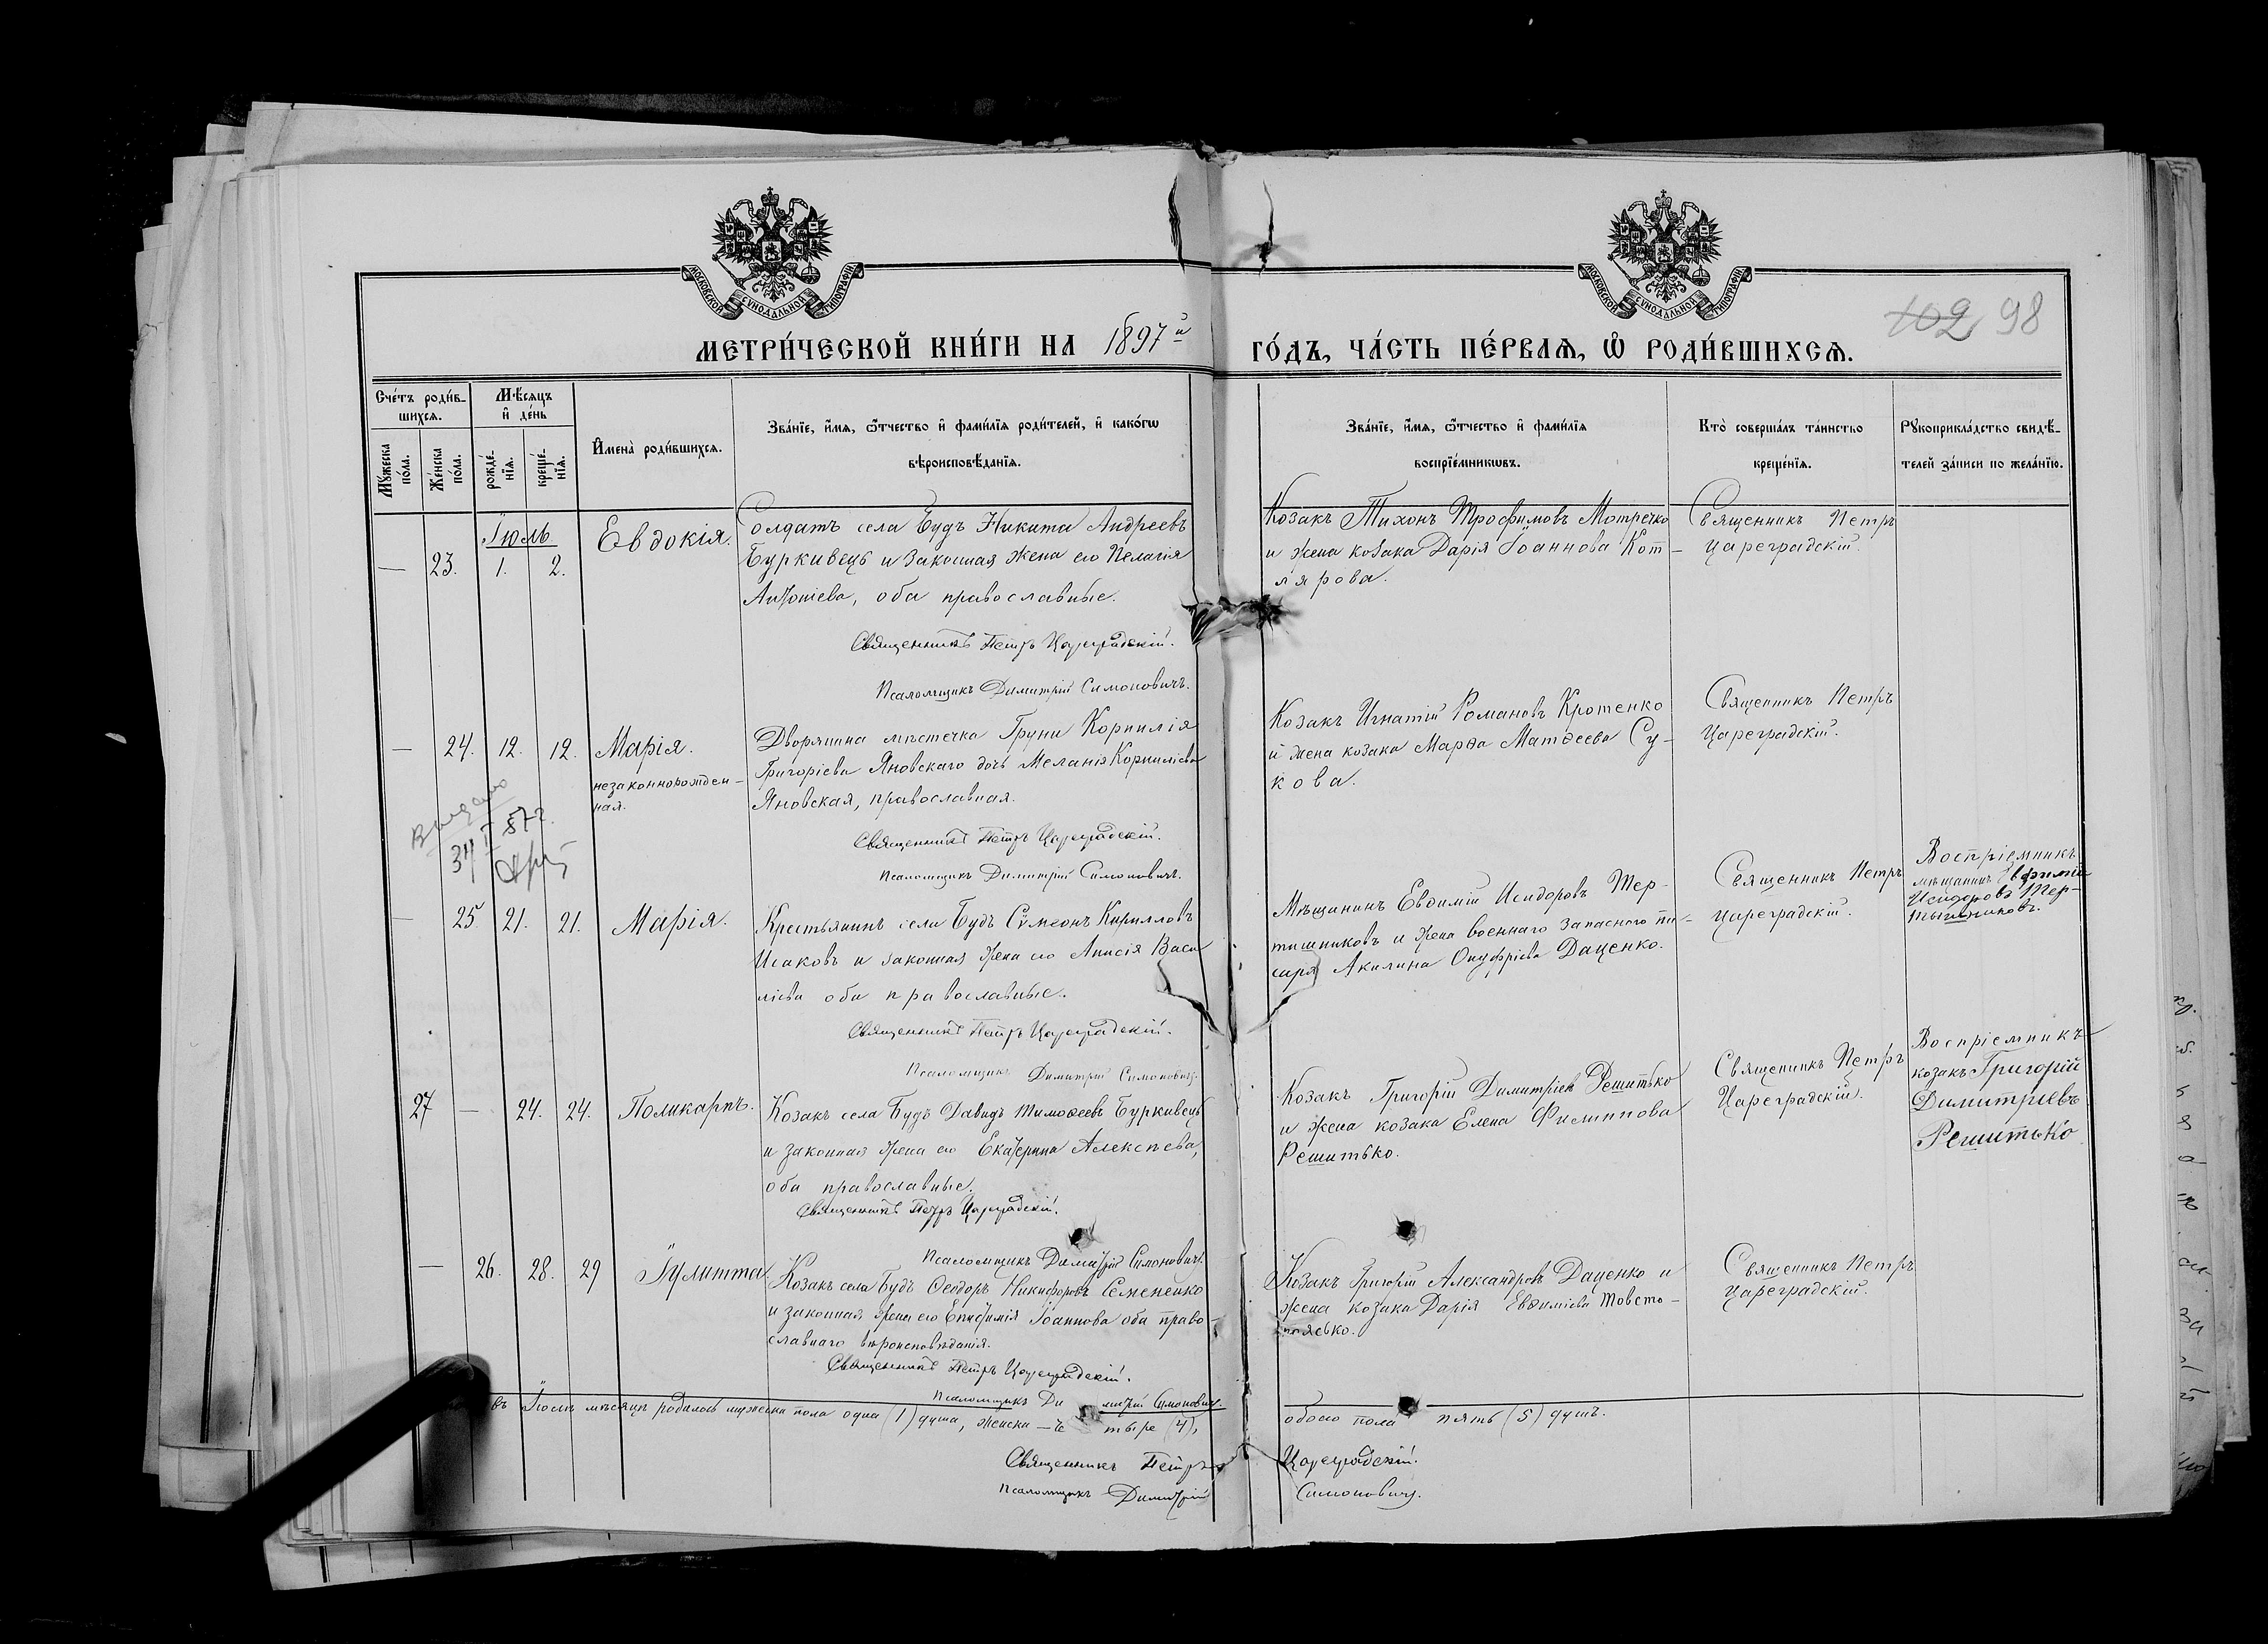 МОСКОВСКОЙ СУНОДАЛЬНОЙ ТИПОГРАФІИ
МОСКОВСКОЙ СУНОДАЛЬНОЙ ТИПОГРАФІИ
102 98
МЕТРИ́ЧЕСКОЙ КНИ́ГИ НА 1897й ГО́ДЪ, ЧА́СТЬ ПЕ́РВАѦ, Ѡ҆ РОДИ́ВШИХСѦ.
Сче́тъ роди́в-
шихся.
Мꙋ́жеска
по́ла.
Же́нска
по́ла.
Мѣ́сяцъ
и҆ де́нь
рожде́-
нїя.
креще́-
нїя.
И҆мена̀ роди́вшихся.
Зва́нїе, и҆́мя, ѻ҆́тчество и҆ фами́лїя роди́телей, и҆ како́гѡ
вѣроисповѣ́данїя.
Зва́нїе, и҆́мя, ѻ҆́тчество и҆ фами́лїя
воспрїе́мникѡвъ.
Кто̀ соверша́лъ та́инство
креще́нїя.
Рꙋкоприкла́дство свидѣ́-
телей за́писи по жела́нїю.
Іюль
— 23. 1. 2.
Евдокія.
Солдатъ села Будъ Никита Андреевъ
Буркивець и законная жена его Пелагія
Антоніева, оба православные.
Священникъ Петръ Цареградскій.
Псаломщикъ Димитрій Симоновичъ.
Козакъ Тихонъ Трофимовъ Мотречко
и жена козака Дарія Іоаннова Кот-
лярова.
Священникъ Петръ
Цареградскій.
— 24. 12. 12.
Марія.
незаконнорожден-
ная.
Дворянина мѣстечка Груни Корнилія
Григоріева Яновскаго дочь Меланія Корниліева
Яновская, православная.
Священникъ Петръ Цареградскій.
Псаломщикъ Димитрій Симоновичъ.
Козакъ Игнатій Романовъ Кротенко
и жена козака Марѳа Матѳеева Су-
кова.
Священникъ Петръ
Цареградскій.
— 25. 21. 21.
Марія.
Крестьянинъ села Будъ Сѵмеонъ Кирилловъ
Исаковъ и законная жена его Анисія Васи
ліева оба православные.
Священникъ Петръ Цареградскій.
Псаломщикъ Димитрій Симоновичъ.
Мѣщанинъ Евѳимій Исидоровъ Тер-
тишниковъ и жена военнаго запаснаго пи-
саря Акилина Онуфріева Даценко.
Священникъ Петръ
Цареградскій.
Воспріемникъ
мѣщанинъ Евфимій
Исидоровъ Тер-
тышниковъ.
27 — 24. 24.
Поликарпъ.
Козакъ села Будъ Давидъ Тимоѳеевъ Буркивець
и законная жена его Екатерина Алексѣева,
оба православные.
Священникъ Петръ Цареградскій.
Псаломщикъ Димитрій Симоновичъ.
Козакъ Григорій Димитріевъ Решитько
и жена козака Елена Филиппова
Решитько.
Священникъ Петръ
Цареградскій.
Воспріемникъ
козакъ Григорій
Димитріевъ
Решитько
— 26. 28. 29
Іулитта.
Козакъ села Будъ Ѳеодоръ Никифоровъ Семененко
и законная жена его Епифимія Іоаннова оба право-
славнаго вѣроисповѣданія.
Священникъ Петръ Цареградскій.
Псаломщикъ Димитрій Симоновичъ.
Козакъ Григорій Александровъ Даценко и
жена козака Дарія Евѳиміева Товсто-
пятько.
Священникъ Петръ
Цареградскій.
въ Іюлѣ мѣсяцѣ родилось мужеска пола одна (1) душа, женска — четыре (4), обоего пола пять (5) душъ.
Священникъ Петръ Цареградскій.
Псаломщикъ Димитрій Симоновичъ.